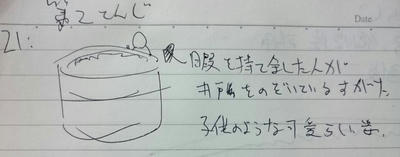 第2てんじ
Date
21:
暇を持て余した人が
井戸をのぞいているすがた。
子供のような可愛らしい姿。